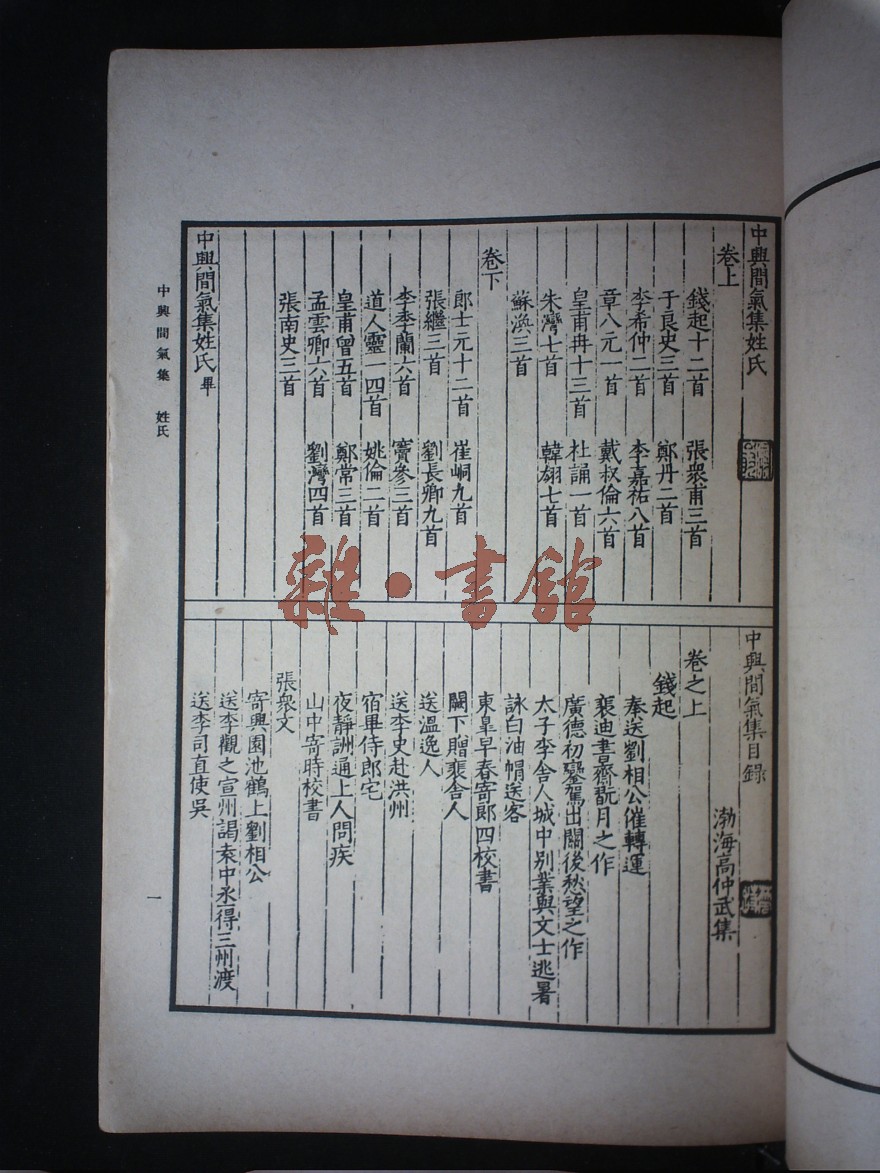 中興間氣集姓氏
卷上
錢起十二首 張衆甫三首
于良史三首 鄭丹二首
李希仲二首 李嘉祐八首
章八元一首 戴叔倫六首
皇甫冉十三首 杜誦一首
朱灣七首 韓翃七首
蘇渙三首
卷下
郎士元十二首 崔峒九首
張繼三首 劉長卿九首
李季蘭六首 竇參三首
道人靈一四首 姚倫二首
皇甫曾五首 鄭常三首
孟雲卿六首 劉灣四首
張南史三首
中興間氣集姓氏畢
中興間氣集目錄
渤海高仲武集
卷之上
錢起
奏送劉相公催轉運
裴迪書齋翫月之作
廣德初鑾駕出關後愁望之作
太子李舍人城中別業與文士逃暑
詠白油帽送客
東臯早春寄郎四校書
闕下贈裴舍人
送溫逸人
送李史赴洪州
宿畢侍郎宅
夜靜詶通上人問疾
山中寄時校書
張衆文
寄興園池鶴上劉相公
送李觀之宣州謁袁中丞得三州渡
送李司直使吳
中興間氣集 姓氏
一
雜·書館